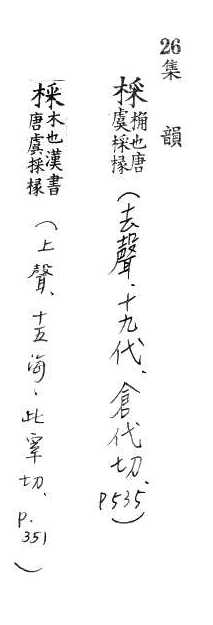 26
集韻
棌桷也唐虞採椽(去聲、十九代、倉代切、P535)
棌木也漢書唐虞採椽(上聲、十五海、此宰切、P.351)